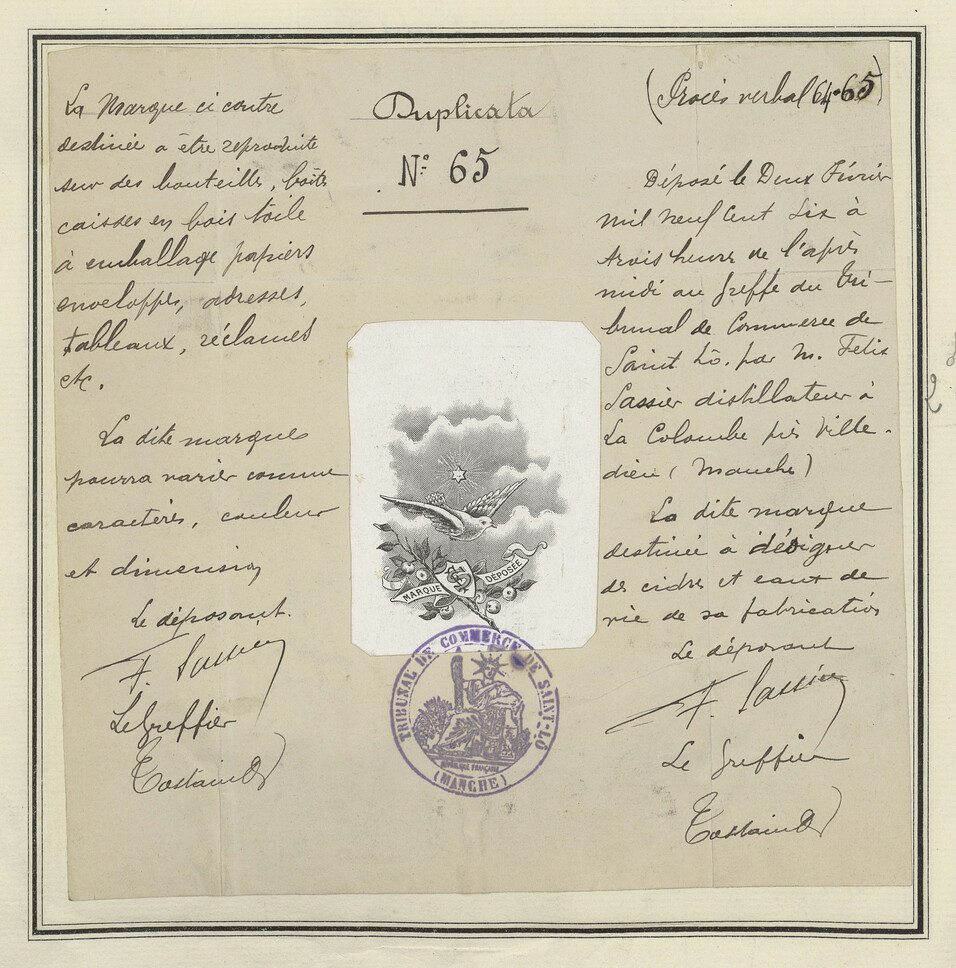 La Marque ci contre
destinée a être reproduite
sur des bouteilles, boîtes
caisses en bois toile
à emballage papiers
enveloppes, adresses,
tableaux, réclames
etc.
La dite marque
pourra varier comme
caractères, couleur
et dimension
Le déposant.
F. Sassier
Le Greffier
Tostain
Duplicata
N° 65
MARQUE DÉPOSÉE
TRIBUNAL DE COMMERCE DE SAINT-LÔ
RÉPUBLIQUE FRANÇAISE
(MANCHE)
(Procès verbal 64-65)
Déposé le Deux Février
mil neuf Cent Six à
trois heures de l'après
midi au Greffe du Tri-
bunal de Commerce de
Saint Lô. par M. Félix
Sassier distillateur à
La Colombe près Ville-
dieu (Manche)
La dite marque
destinée à désigner
des cidres et eaux de
vie de sa fabrication
Le déposant
F. Sassier
Le Greffier
Tostain
2